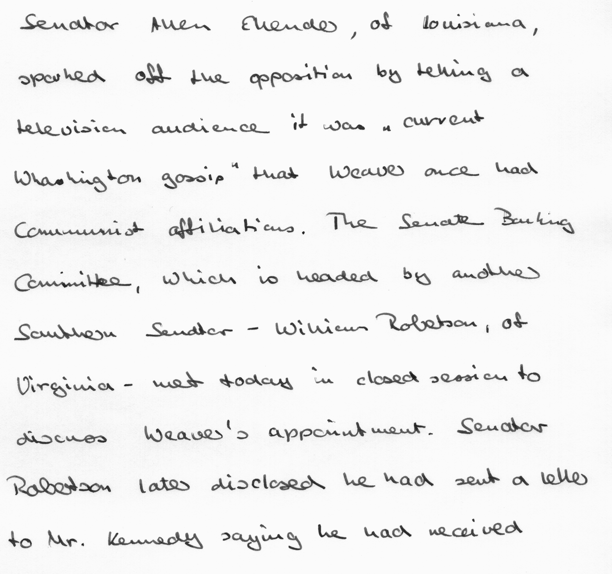 Senator Allen Ellender, of Louisiana,
sparked off the opposition by telling a
television audience it was „current
Whashington gossip" that Weaver once had
Communist affiliations. The Senate Banking
Committee, which is headed by another
Southern Senator - Williams Robertson, of
Virginia - met today in closed session to
discuss Weaver's appointment. Senator
Robertson later disclosed he had sent a letter
to Mr. Kennedy saying he had received